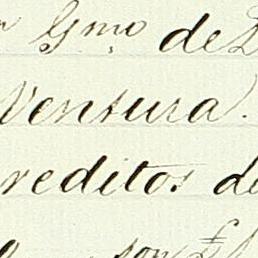 Gmo de
Ventura.
creditos de
son £